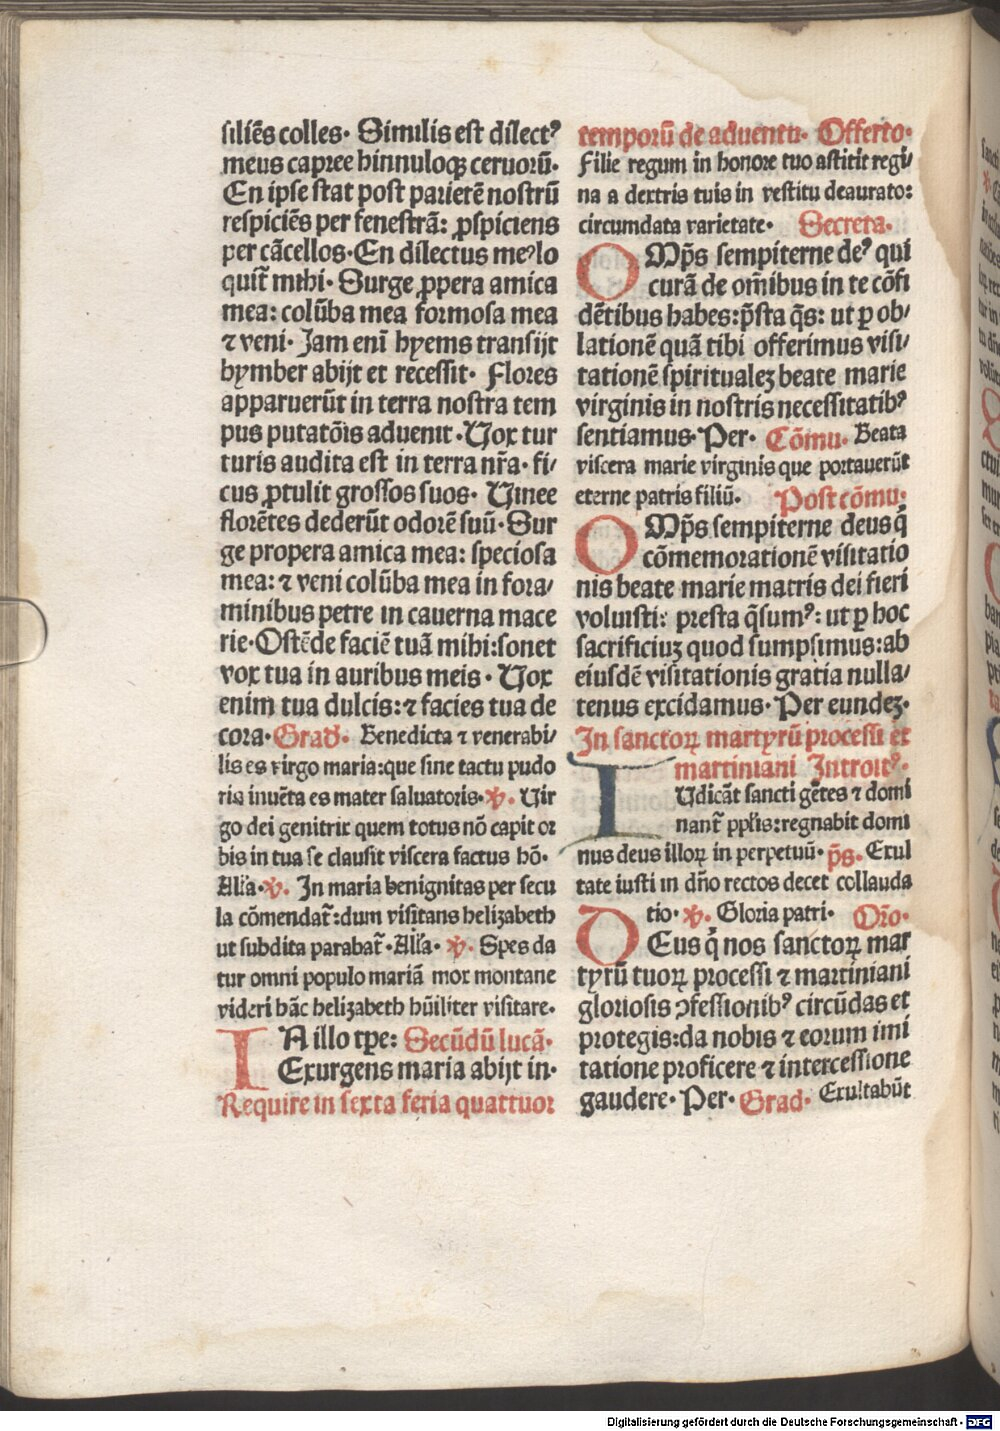 siliēs colles. Similis est dilectꝰ
meus capree hinnuloqꝫ ceruorū.
En ipse stat post parietē nostrū
respiciēs per fenestrā: ꝓspiciens
per cācellos. En dilectus meꝰ lo
quit᷑ mihi. Surge ꝓpera amica
mea: colūba mea formosa mea
⁊ veni. Jam eni hyems transijt
hymber abijt et recessit. Flores
apparuerūt in terra nostra tem
pus putatōis aduenit. Uox tur
turis audita est in terra nr̄a. fi/
cus ꝓtulit grossos suos. Uinee
florētes dederūt odorē suū. Sur
ge propera amica mea: speciosa
mea: ⁊ veni colūba mea in fora/
minibus petre in cauerna mace
rie. Ostēde faciē tuā mihi: sonet
vox tua in auribus meis. Uox
enim tua dulcis: ⁊ facies tua de
cora. Grad. Benedicta ⁊ venerabi/
lis es virgo maria: que sine tactu pudo
ris inuēta es mater saluatoris. ℣. Uir
go dei genitrix quem totus nō capit or
bis in tua se clausit viscera factus hō.
Alia. ℣. In maria benignitas per secu
la cōmendat᷑: dum visitans helizabeth
ut subdita parabat᷑. Alia. ℣. Spes da
tur omni populo mariā mox montane
videri hāc helizabeth hūiliter visitare.
IN illo tpe: Secūdū lucā.
Exurgens maria abijt in.
Require in sexta feria quattuor
temporū de aduentu. Offerto.
Filie regum in honore tuo astitit regi/
na a dextris tuis in vestitu deaurato:
circumdata varietate. Secreta.
OMp̄s sempiterne deꝰ qui
curā de om̄ibus in te cōfi
dētibus habes: p̄sta q̄s: ut ꝑ ob/
lationē quā tibi offerimus visi/
tationē spiritualeꝫ beate marie
virginis in nostris necessitatibꝰ
sentiamus. Per. Cōmu. Beata
viscera marie virginis que portauerūt
eterne patris filiū. Post cōmu.
OMp̄s sempiterne deus q̄
cōmemorationē visitatio
nis beate marie matris dei fieri
voluisti: presta q̄sumꝰ: ut ꝑ hoc
sacrificiuꝫ quod sumpsimus: ab
eiusdē visitationis gratia nulla/
tenus excidamus. Per eundeꝫ.
In sanctoꝝ martyrū processi et
martiniani Introitꝰ.
IUdicāt sancti gētes ⁊ domi
nant᷑ ppl̄is: regnabit domi
nus deus illoꝝ in perpetuū. p̄s. Exul
tate iusti in dn̄o rectos decet collauda
tio. ℣. Gloria patri. Or̄o.
DEus q̄ nos sanctoꝝ mar
tyrū tuoꝝ processi ⁊ martiniani
gloriosis ꝯfessionibꝰ circūdas et
protegis: da nobis ⁊ eorum imi
tatione proficere ⁊ intercessione
gaudere. Per. Grad. Exultabūt
Digitalisierung gefördert durch die Deutsche Forschungsgemeinschaft - DFG